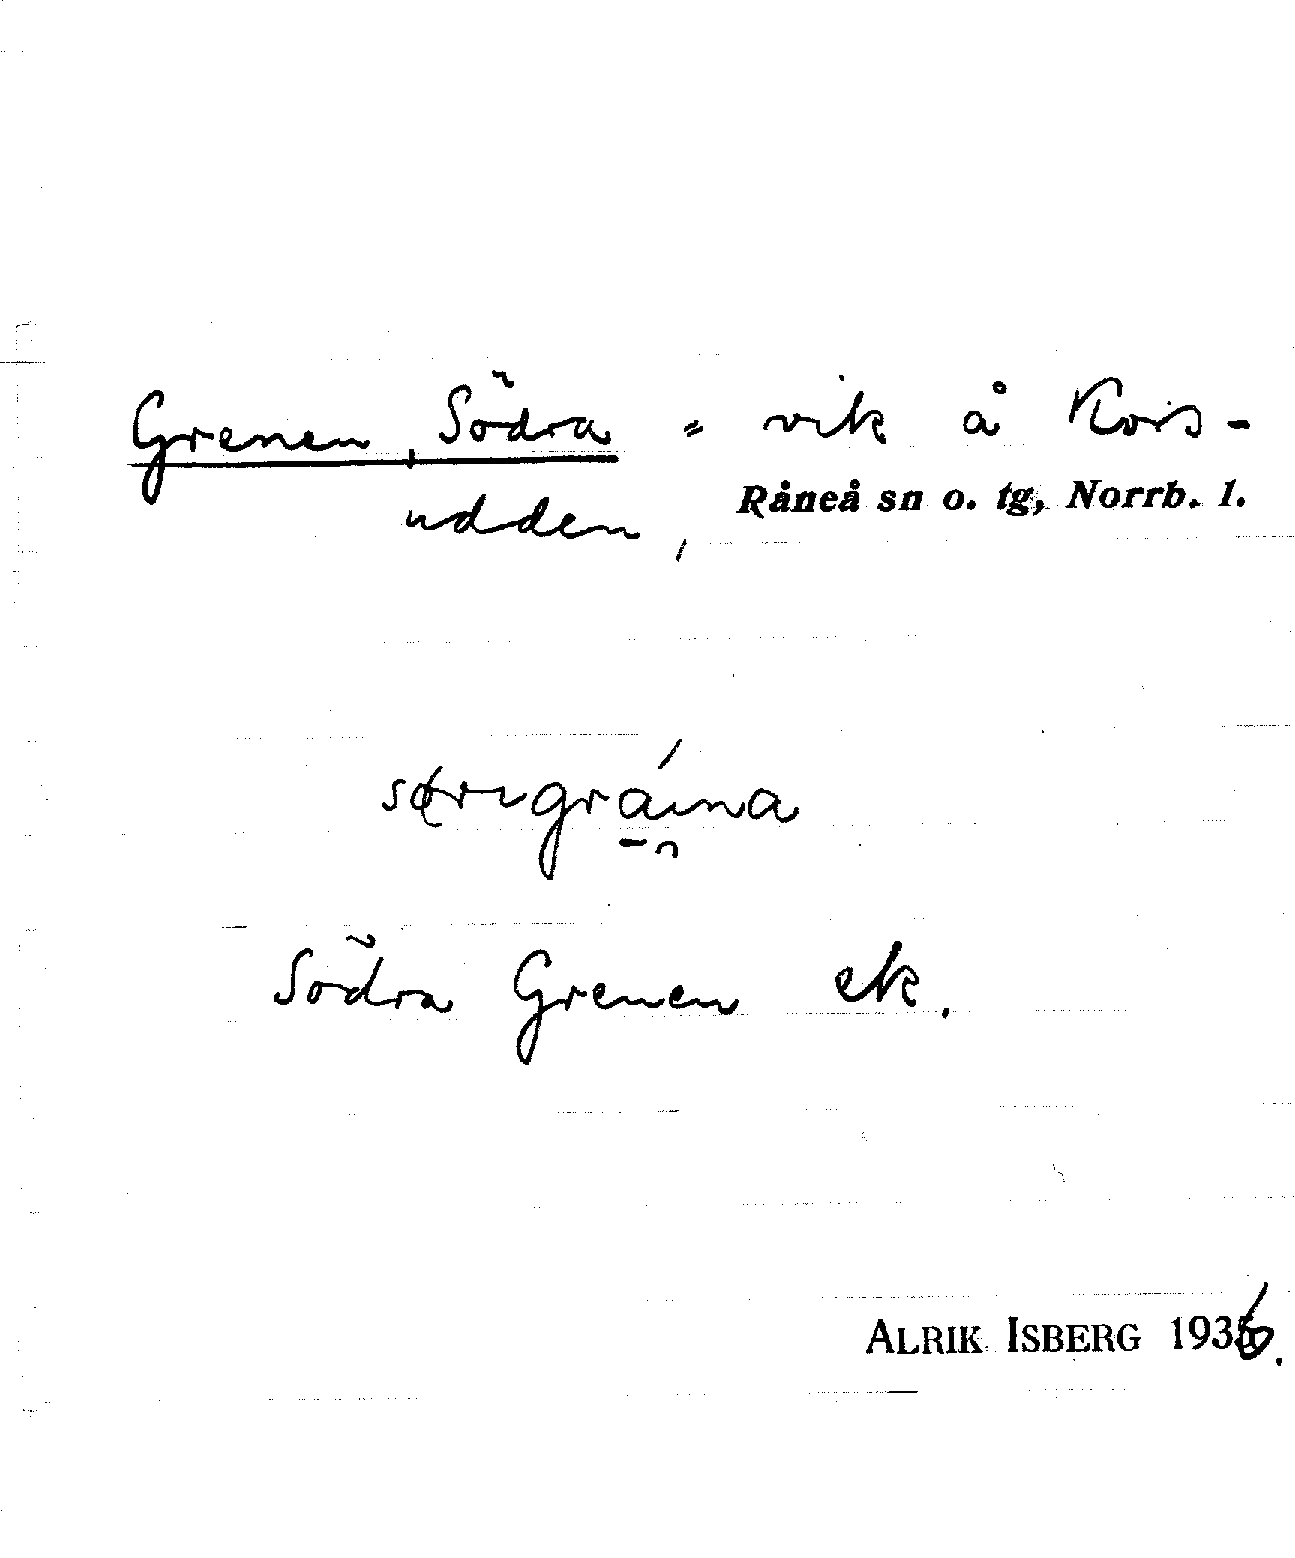 Grenen, Södra = vik å Kvis-
udden, Råneå sn o. tg, Norrb. l.
Södra Grenen ek.
ALRIK ISBERG 1936.